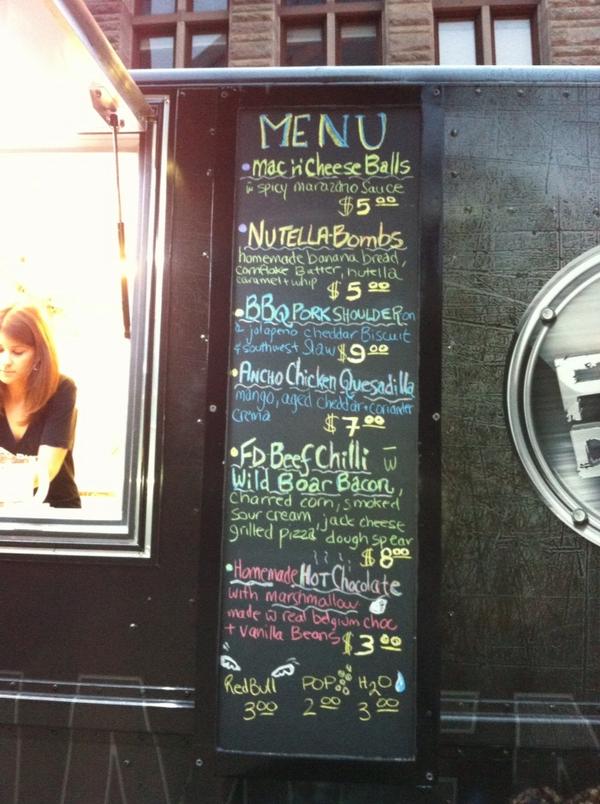 MENU
• Mac 'n' Cheese Balls
w spicy marazano Sauce
$5.00
• NUTELLA-Bombs
homemade banana bread,
cornflake Batter, nutella
caramel + whip
$5.00
• BBQ PORK SHOULDER on
a jalapeno cheddar Biscuit
+ southwest Slaw $9.00
• ANCHO Chicken Quesadilla
mango, aged cheddar + coriander
crema
$7.00
• FD Beef Chilli w
Wild Boar Bacon,
charred corn, smoked
sour cream, jack cheese
grilled pizza dough spear
$8.00
• Homemade HOT Chocolate
with marshmallow
made w real belgium choc
+ vanilla Beans $3.00
RedBull POP H2O
3.00 2.00 3.00